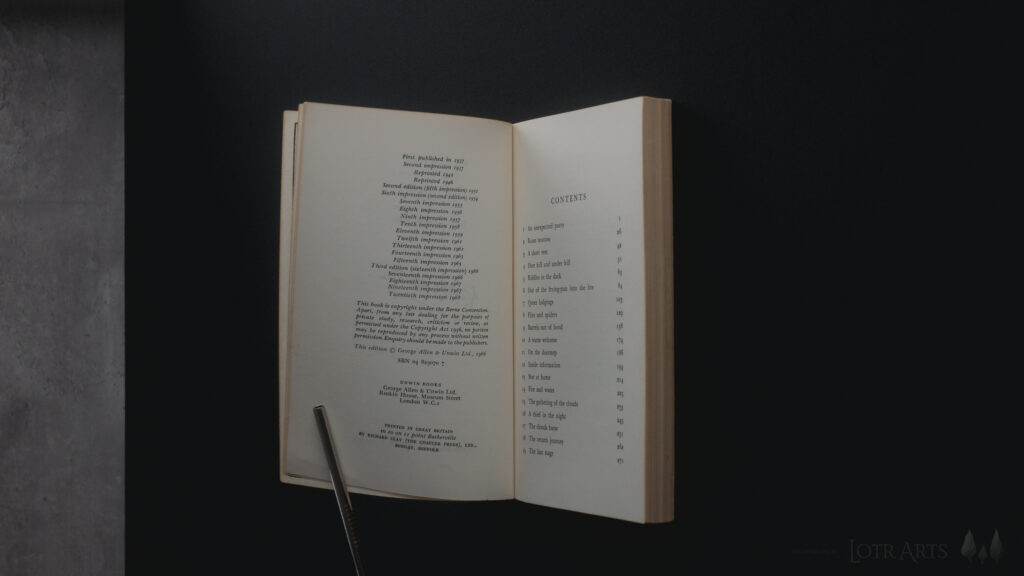 First published in 1937
Second impression 1937
Reprinted 1942
Reprinted 1946
Second edition (fifth impression) 1951
Sixth impression (second edition) 1954
Seventh impression 1955
Eighth impression 1956
Ninth impression 1957
Tenth impression 1958
Eleventh impression 1959
Twelfth impression 1961
Thirteenth impression 1962
Fourteenth impression 1963
Fifteenth impression 1965
Third edition (sixteenth impression) 1966
Seventeenth impression 1966
Eighteenth impression 1967
Nineteenth impression 1967
Twentieth impression 1968
This book is copyright under the Berne Convention.
Apart, from any fair dealing for the purposes of
private study, research, criticism or review, as
permitted under the Copyright Act 1956, no portion
may be reproduced by any process without written
permission. Enquiry should be made to the publishers.
This edition © George Allen & Unwin Ltd., 1966
SBN 04 823070 7
UNWIN BOOKS
George Allen & Unwin Ltd.
Ruskin House, Museum Street
London W.C.1
PRINTED IN GREAT BRITAIN
in 10 on 11 point Baskerville
BY RICHARD CLAY (THE CHAUCER PRESS), LTD.,
BUNGAY, SUFFOLK
CONTENTS
1 An unexpected party 1
2 Roast mutton 26
3 A short rest 42
4 Over hill and under hill 51
5 Riddles in the dark 65
6 Out of the frying-pan into the fire 84
7 Queer lodgings 107
8 Flies and spiders 129
9 Barrels out of bond 158
10 A warm welcome 174
11 On the doorstep 186
12 Inside information 194
13 Not at home 214
14 Fire and water 225
15 The gathering of the clouds 233
16 A thief in the night 245
17 The clouds burst 251
18 The return journey 262
19 The last stage 271
LOTR ARTS